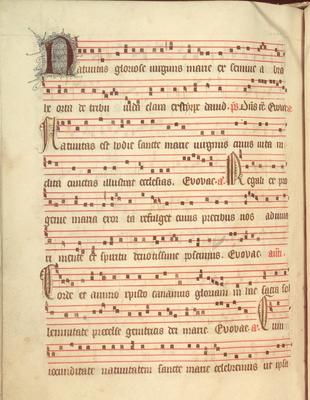 Nativitas gloriose virginis marie ex semine a bra
he orta de tribu iuda clara ex stirpe david. ps. Dns. Evovae
Nativitas est hodie sancte marie virginis cuius vita in
clita cunctas illustrat ecclesias. Evovae. a. Regali ex pro
genie maria exor ta refulget cuius precibus nos adiuva
ri mente et spiritu devotissime poscimus. Evovae. an.
Corde et animo xpisto canamus gloriam in hac sacra sol
lemnitate precelse genitricis dei marie. Evovae. a. Cum
iocunditate nativitatem sancte marie celebremus ut ipsa